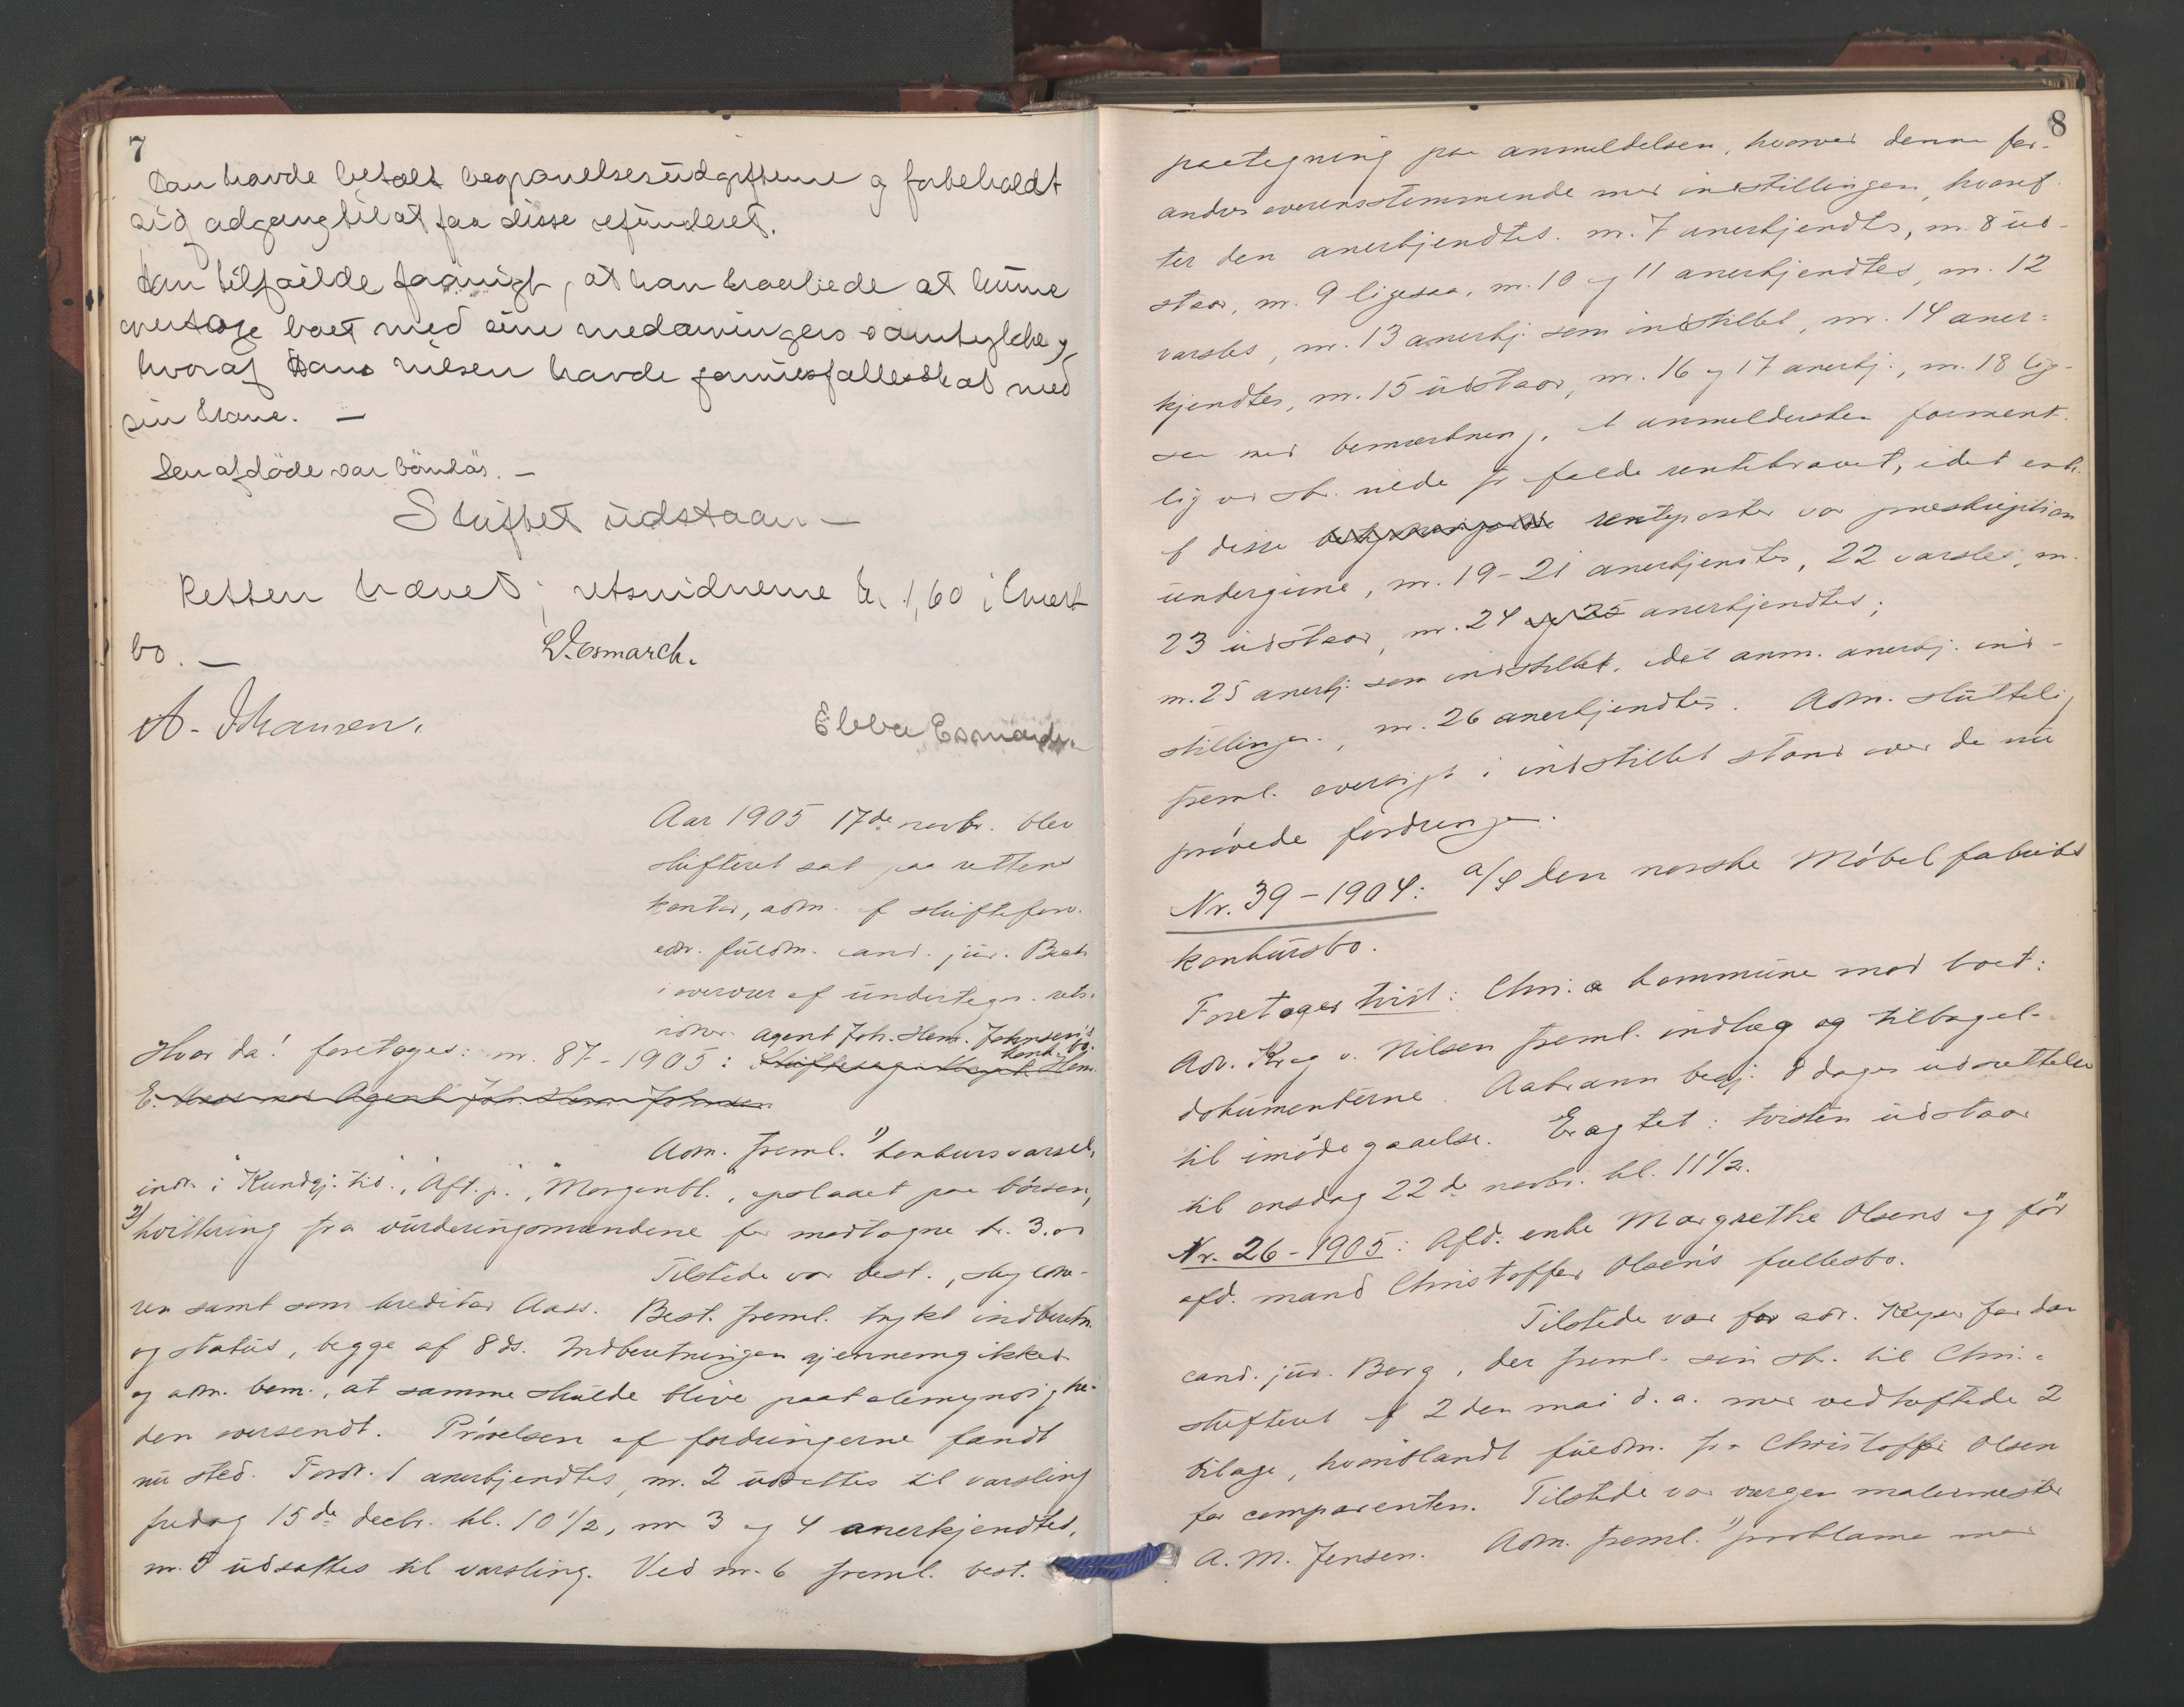 7
Han havde betalt begravelsesudgifterne og forbeholdt
sig adgang til at faa disse refunderet.
Han tilføiede forøvrigt, at han haabede at kunne
overtage boet med sine medarvingers samtykke,
hvoraf Hans Nilsen havde formuesfællesskab med
sin kone. —
Den afdöde var barnlös. —
Skiftet udstaar —
Retten hævet; retsvidnerne kr. 1,60 i hvert
bo. —
L. Esmarch.
A. Johansen.
Ebba Esmarch.
Aar 1905 17de novbr. blev
skifteret sat paa rettens
kontor, adm. af skifteforv.
edsv. fuldm. cand. jur. Bech
i overvær af undertegn. rets-
vidner.
Hvor da! foretoges: nr. 87-1905: Agent Joh. Henr. Johnsen's konk.bo.
Adm. freml. 1) konkursvarsel,
indr. i "Kundgj. tid.", "Aft.p.", "Morgenbl.", opslaaet paa börsen,
2) kvittering fra vurderingsmændene for modtagne kr. 3.00
Tilstede var best., skyldne-
ren samt som kreditor Aass. Best. freml. trykt indberetn.
og status, begge af 8 ds. Indberetningen gjennemgikkes
og adm. bem., at samme skulde blive paatalemyndighe-
den oversendt. Prövelsen af fordringerne fandt
nu sted. Fordr. 1 anerkjendtes, nr. 2 udsattes til varsling
fredag 15de decbr. kl. 10½, nr. 3 og 4 anerkjendtes,
nr. 5 udsattes til varsling. Ved nr. 6 freml. best.
8
paategning paa anmeldelsen, hvorved denne for-
andres overensstemmende med indstillingen, hvoref-
ter den anerkjendtes. nr. 7 anerkjendtes, nr. 8 ud-
staar, nr. 9 ligesaa, nr. 10 og 11 anerkjendtes, nr. 12
varsles, nr. 13 anerkj. som indstillet, nr. 14 aner-
kjendtes, nr. 15 udstaar, nr. 16 og 17 anerkj., nr. 18 lige-
saa med bemærkning, at anmelderen forment-
lig vil nede fra falde rentekravet, idet enk.
af disse renteposter var præskription
undergivne, nr. 19-21 anerkjendtes, 22 varsles, nr.
23 udstaar, nr. 24 og 25 anerkjendtes;
nr. 25 anerkj. som indstillet, idet anm. anerkj. ind-
stillingen, nr. 26 anerkjendtes. Adm. sluttelig
freml. oversigt i indstillet stand over de nu
prövede fordringer.
Nr. 39-1904: A/S Den norske Möbelfabriks
konkursbo.
Foretages tvist: Chr.a kommune mod boet:
Adv. Krag v. Nilsen freml. indlæg og tilbagel.
dokumenterne. Aabrann begj. 8 dages udsættelse
til imödegaaelse. Eragtet: tvisten udstaar
til onsdag 22de novbr. kl. 11½.
Nr. 26-1905: Afd. enke Margrethe Olsens og før
afd. mand Christoffer Olsens fællesbo.
Tilstede var for adv. Keyser fordar
cand. jur. Berg, der freml. sin sk. til Chr.a
skifteret af 2den mai d.a. med vedheftede 2
bilage, hvoriblandt fuldm. fra Christoffer Olsen
for comparenten. Tilstede var vergen malermester
A. M. Jensen. Adm. freml. 1) proklama med